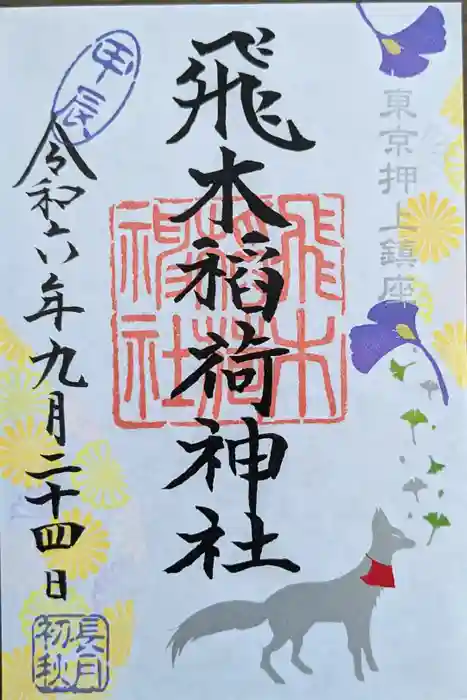 東京押上鎮座
飛木稲荷神社
飛木稲荷神社
甲辰
令和六年九月二十四日
長月
初秋